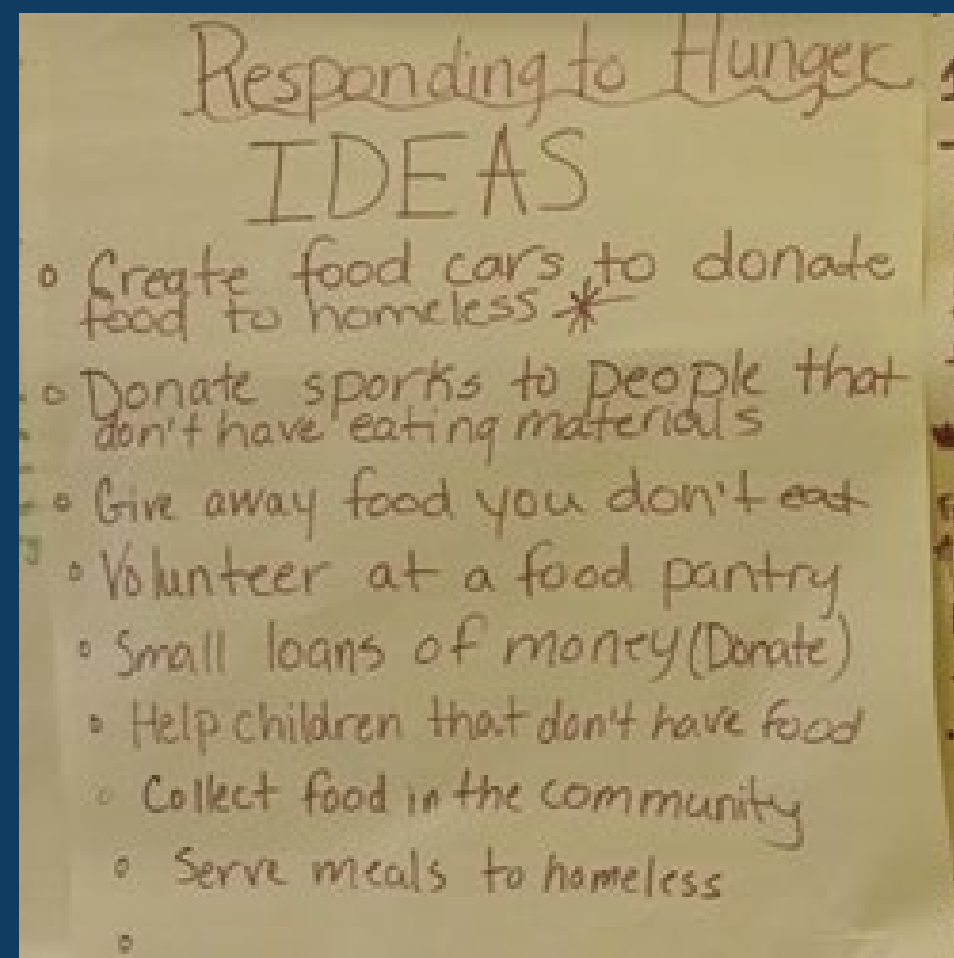 Responding to Hunger
IDEAS
o Create food cars to donate
food to homeless *
o Donate sporks to people that
don't have eating materials
o Give away food you don't eat
o Volunteer at a food pantry
o Small loans of money (Donate)
o Help children that don't have food
o Collect food in the community
o Serve meals to homeless
o